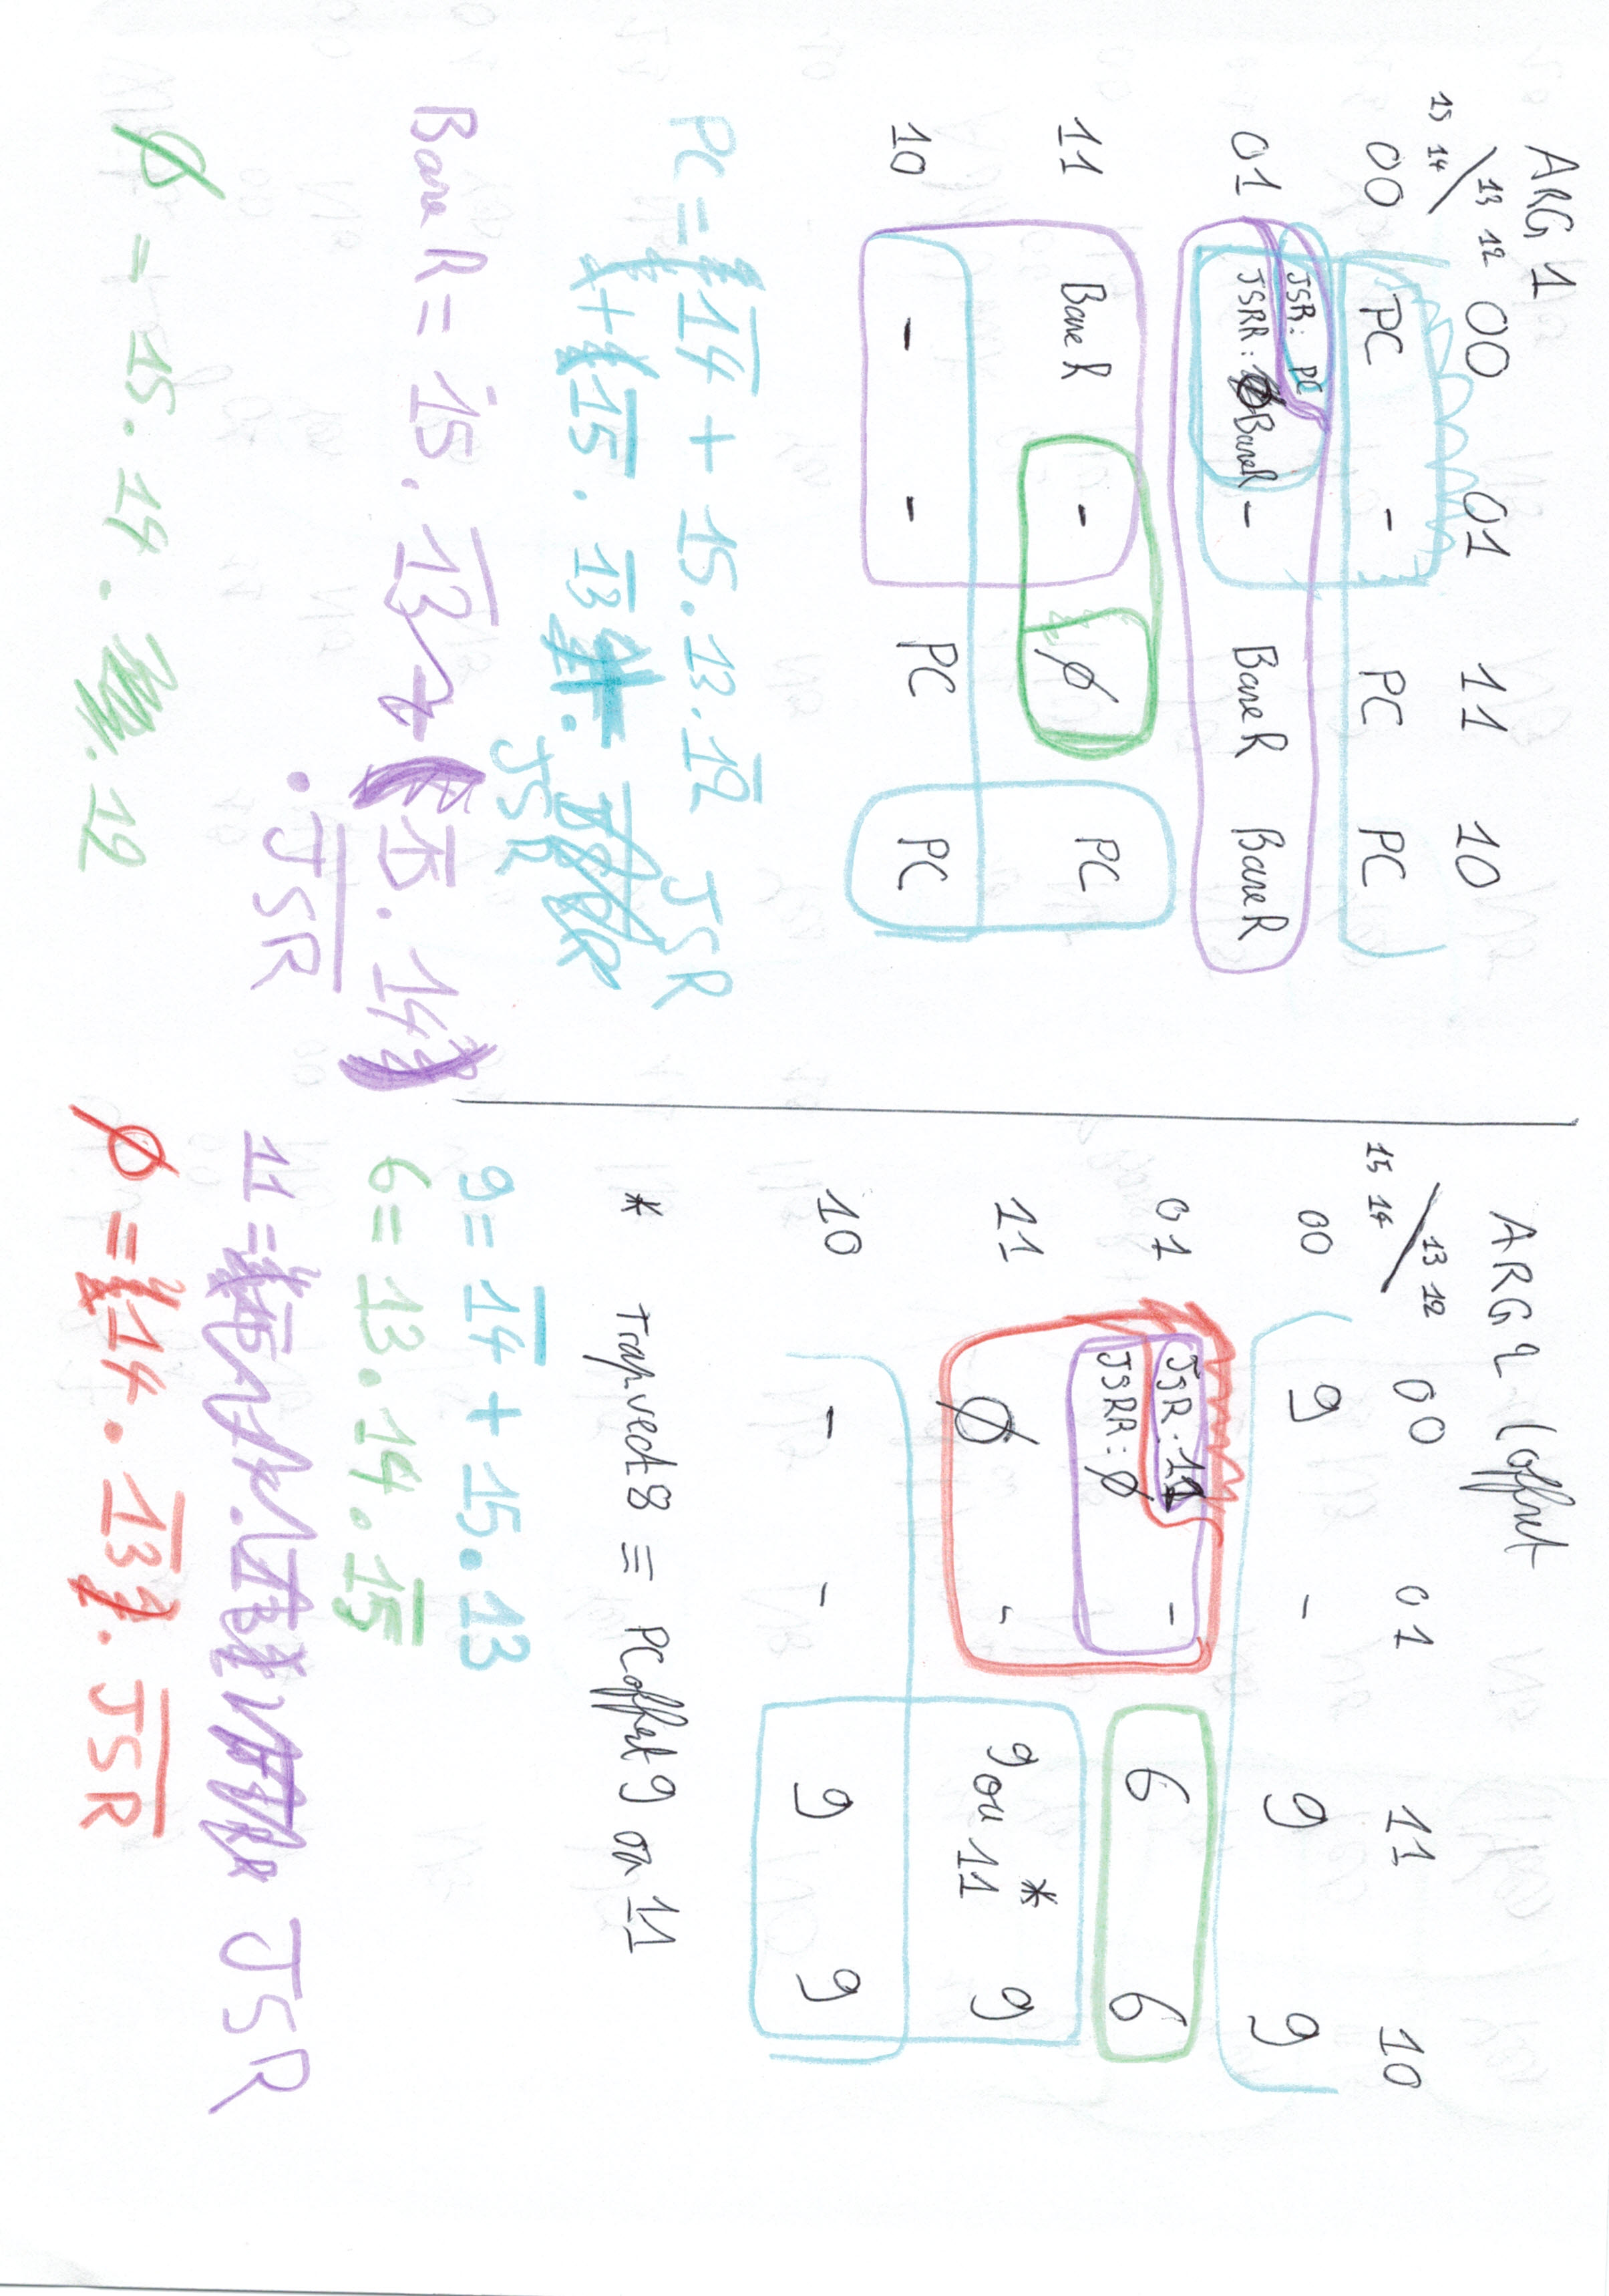 ARG 1
15 14 / 13 12 00 01 11 10
00 PC - PC PC
01 JSR: PC - BaseR BaseR
JSRR: BaseR
11 BaseR - ∅ PC
10 - - PC PC
PC = 1̅4̅ + 15.13.1̅2̅ JSR
+ 1̅5̅ . 1̅3̅ . JSR
BaseR = 15.1̅3̅ + (1̅5̅.14)
. J̅S̅R̅
∅ = 15.14.12
ARG 2 (offset
15 14 / 13 12 00 01 11 10
00 9 - 9 9
01 JSR.11 - 6 6
JSRR: ∅
11 ∅ - 9 ou 11 * 9
10 - - 9 9
* Trapvect8 ≡ PCoffset9 ou 11
9 = 1̅4̅ + 15.13
6 = 13.14.1̅5̅
11 = JSR
∅ = 14.1̅3̅.J̅S̅R̅